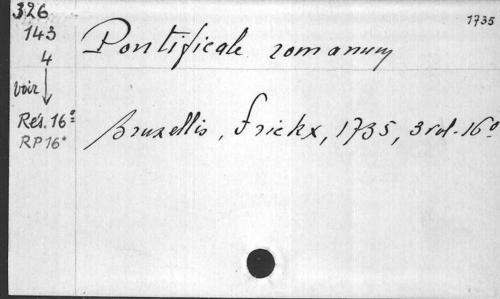 326
143
4
voir
Rés. 16º
RP 16º
1735
Pontificale romanum
Bruxellis, Frickx, 1735, 3 vol. 16º